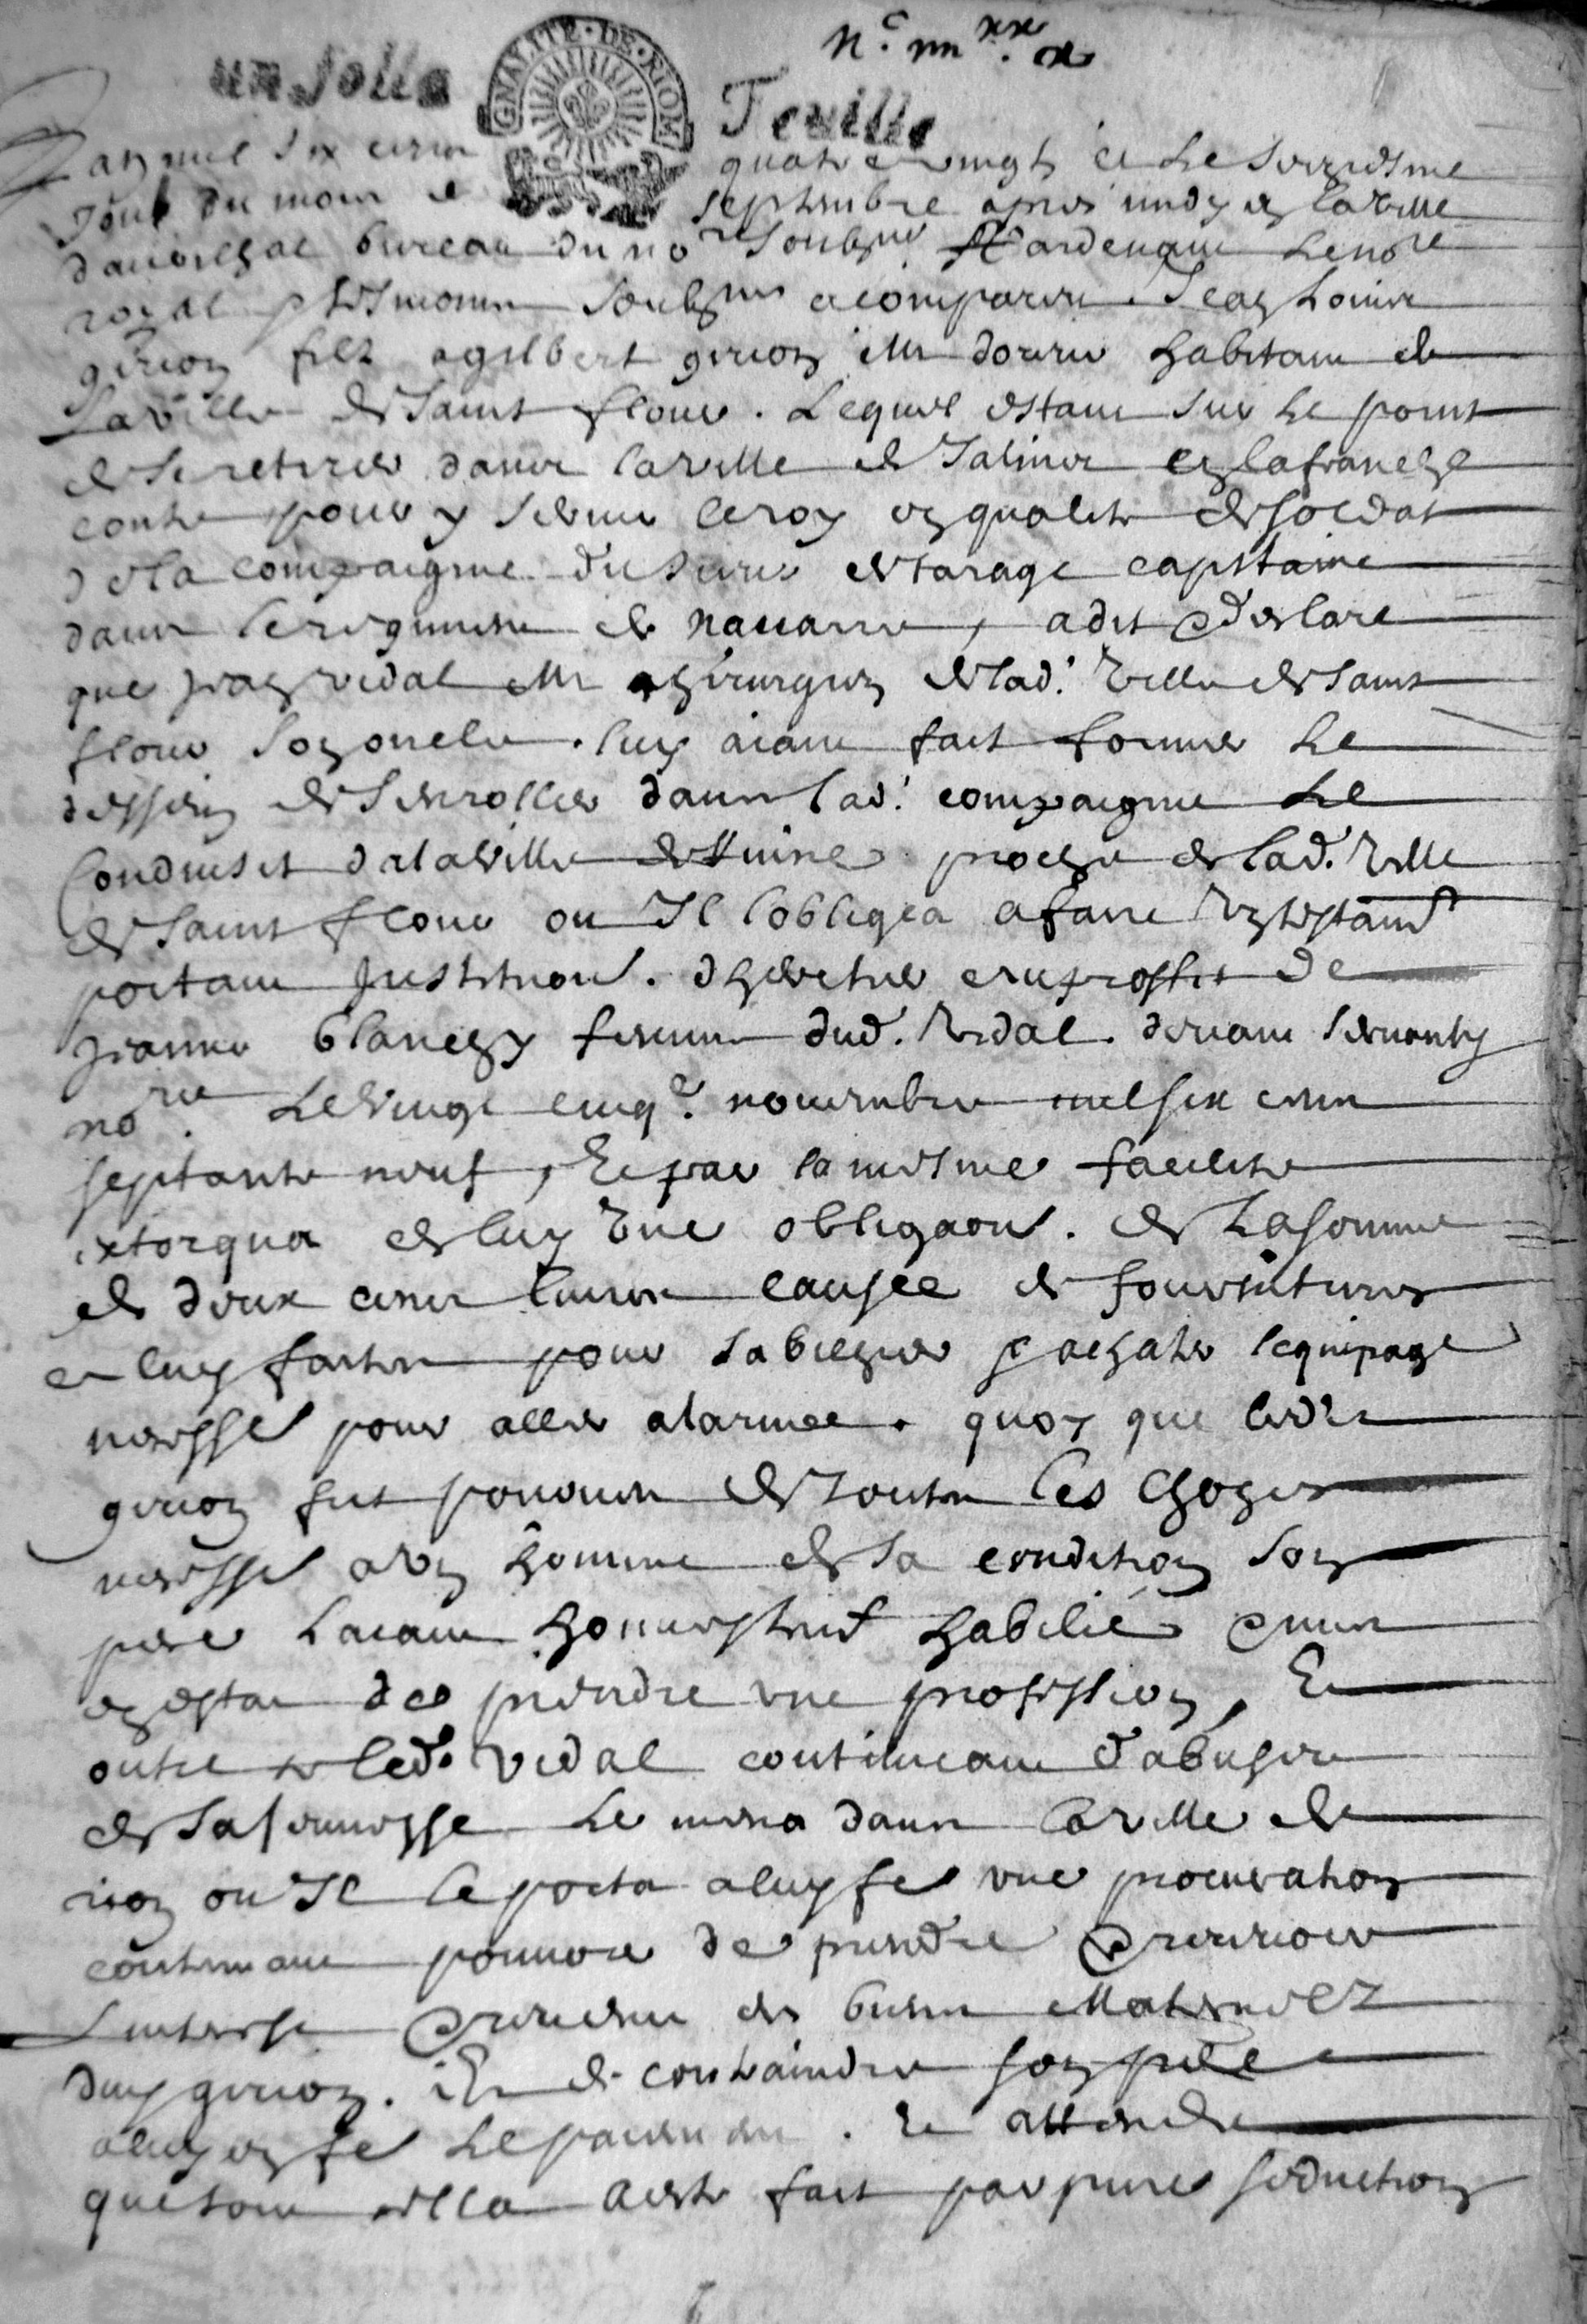 nc. iiii xx. et
un solls Feuille
GNALITE·DE·RIOM
Lan mil six cens quatre vingts et le seiziesme
Jour du mois de septembre apres midy en la ville
bureau du nore soubsne Pardevant le nore
royal p tesmoins soubsnes a comparu Jean Louis
girion filz a gilbert girion Me habitant de
La ville de saint flour. Lequel estant sur le point
de se retirer dans la ville de Salines en la franche
conte pour y servir le roy en qualite de soldat
de la compaignie du sieur de tarage capitaine
dans le regiment de navarre, a dit & desclare
que jean vidal Me chirurgien de lad. ville de saint
flour son oncle. luy aiant fait former le
dessein de senroller dans lad. compaignie le
conduisit a la ville de proche de lad. ville
de saint flour ou Il lobligea a faire un testamt
portant Institution. dheretier au proffit de
jeanne blanchy femme dud. vidal. devant
nore. le vingt cinqe. novembre mil six cens
septante neuf, Et par la mesme facilite
extorqua de luy une obligaon. de la somme
de deux cens livres causee de fournitures
a luy faites pour sabilher & achater lequipage
necesse pour aller a larmee. quoy que ledit
girion fut pourveu de toutes les choses
necesse a un homme de sa condition son
pere laiant honnestemt habilié & mis
en estat de prendre une profession, Et
outre ce led. vidal continuant dabuser
de sa jeunesse le mena dans la ville de
rion ou Il le porta a luy fe une procuration
contenant pouvoir de prendre & recevoir
Linterest & revenu des biens Maternelz
duy girion. Et de contraindre son pere
a luy en fe le paiement. Et attendu
que tout cella a este fait par pure seduction